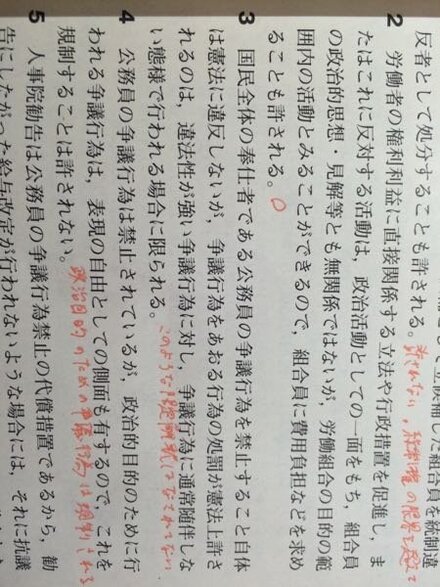 立候補した組合員を統制違
反者として処分することも許される。許されない。統制権の限界を超えて
2 労働者の権利利益に直接関係する立法や行政措置を促進し，ま
たはこれに反対する活動は，政治活動としての一面をもち，組合員
の政治的思想・見解等とも無関係ではないが，労働組合の目的の範
囲内の活動とみることができるので，組合員に費用負担などを求め
ることも許される。○
3 国民全体の奉仕者である公務員の争議行為を禁止すること自体
は憲法に違反しないが，争議行為をあおる行為の処罰が憲法上許さ
れるのは，違法性が強い争議行為に対し，争議行為に通常随伴しな
い態様で行われる場合に限られる。このような限定解釈はなされてない
4 公務員の争議行為は禁止されているが，政治的目的のために行
われる争議行為は，表現の自由としての側面も有するので，これを
規制することは許されない。政治目的のための争議行為は規制される
5 人事院勧告は公務員の争議行為禁止の代償措置であるから，勧
告にしたがった給与改定が行われないような場合には，それに抗議